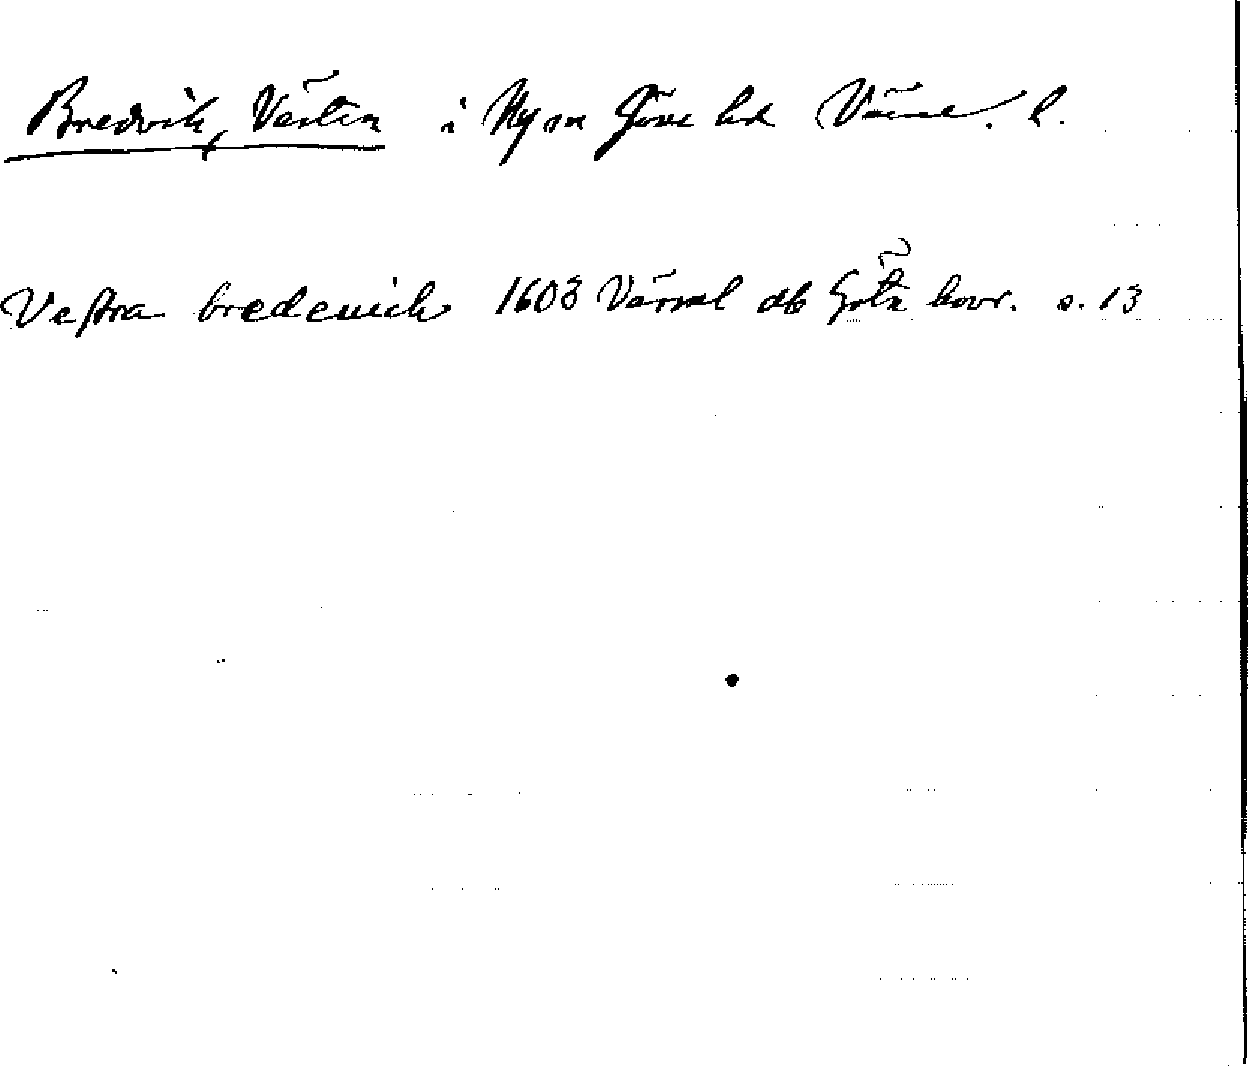 Bredvik, Västra i Ny sn Jösse hd Värml. l.
Vestra bredeuich 1603 Värml ab Göta hovr. s. 13